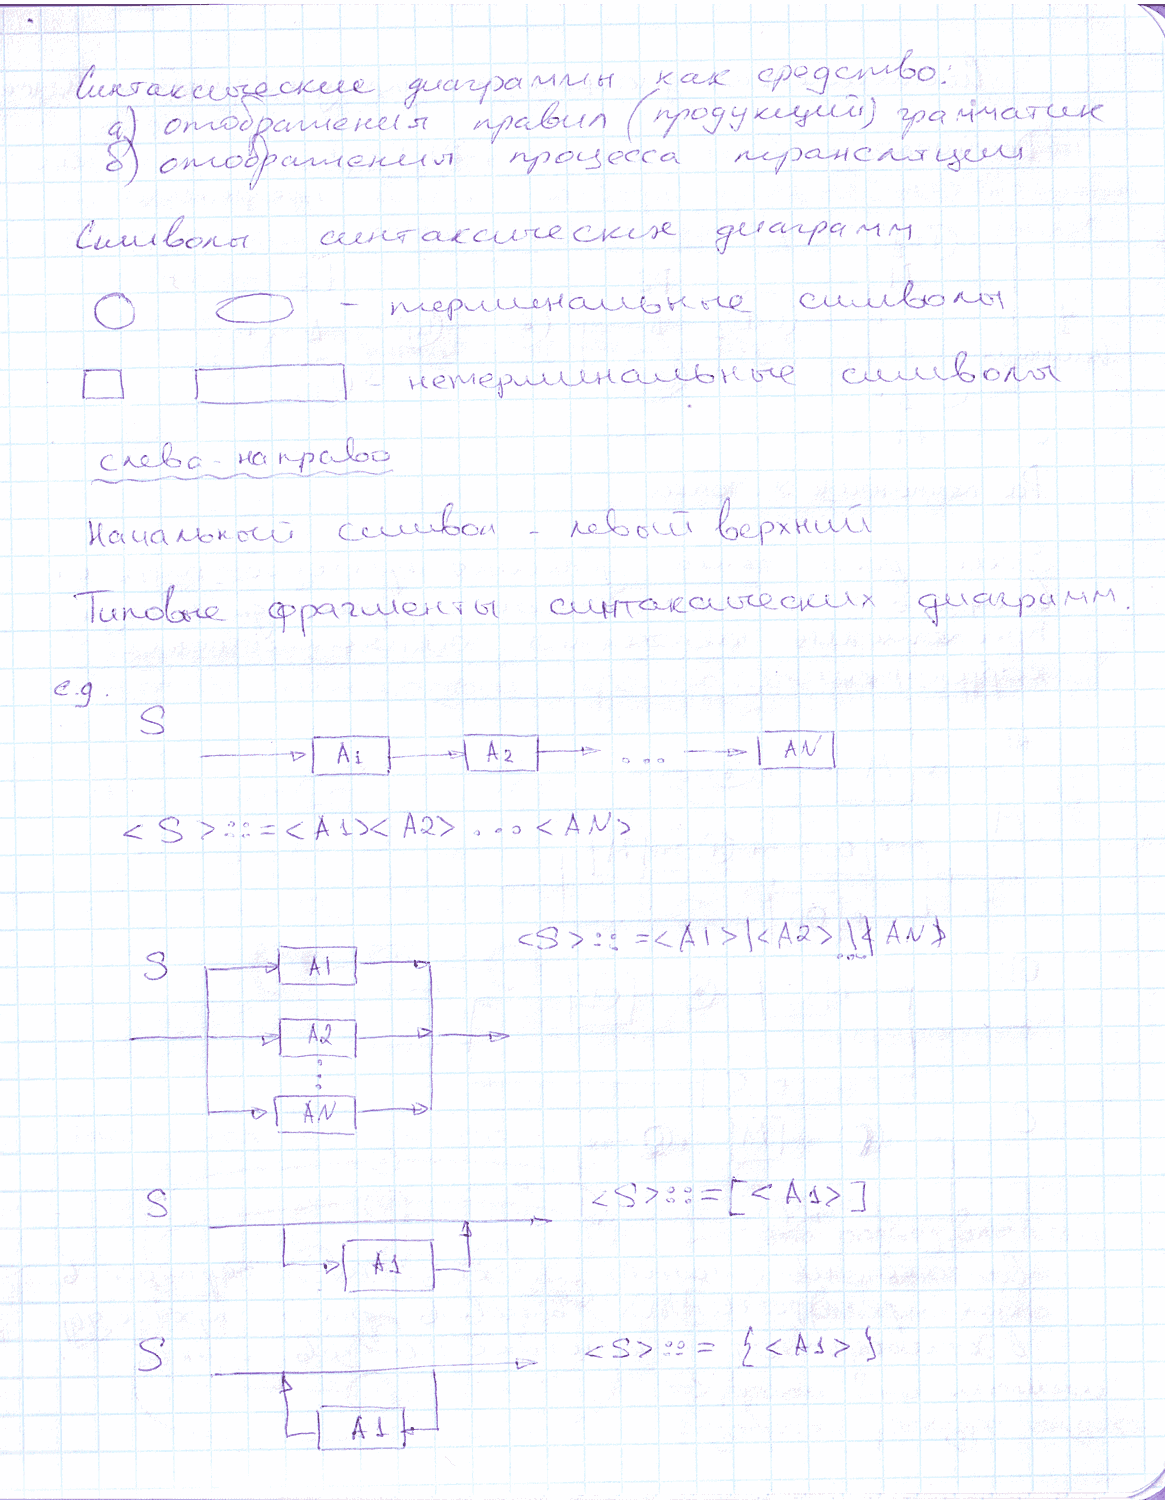 Синтаксические диаграммы как средство:
а) отображения правил (продукций) грамматик
б) отображения процесса трансляции
Символы синтаксических диаграмм
- терминальные символы
- нетерминальные символы
слева-направо
Начальный символ - левый верхний
Типовые фрагменты синтаксических диаграмм.
с.д.
S
A1 A2 ... AN
<S>::=<A1><A2> ... <AN>
<S>::=<A1>|<A2>|...|<AN>
S
A1
A2
AN
<S>::=[<A1>]
S
A1
<S>::= {<A1>}
S
A1